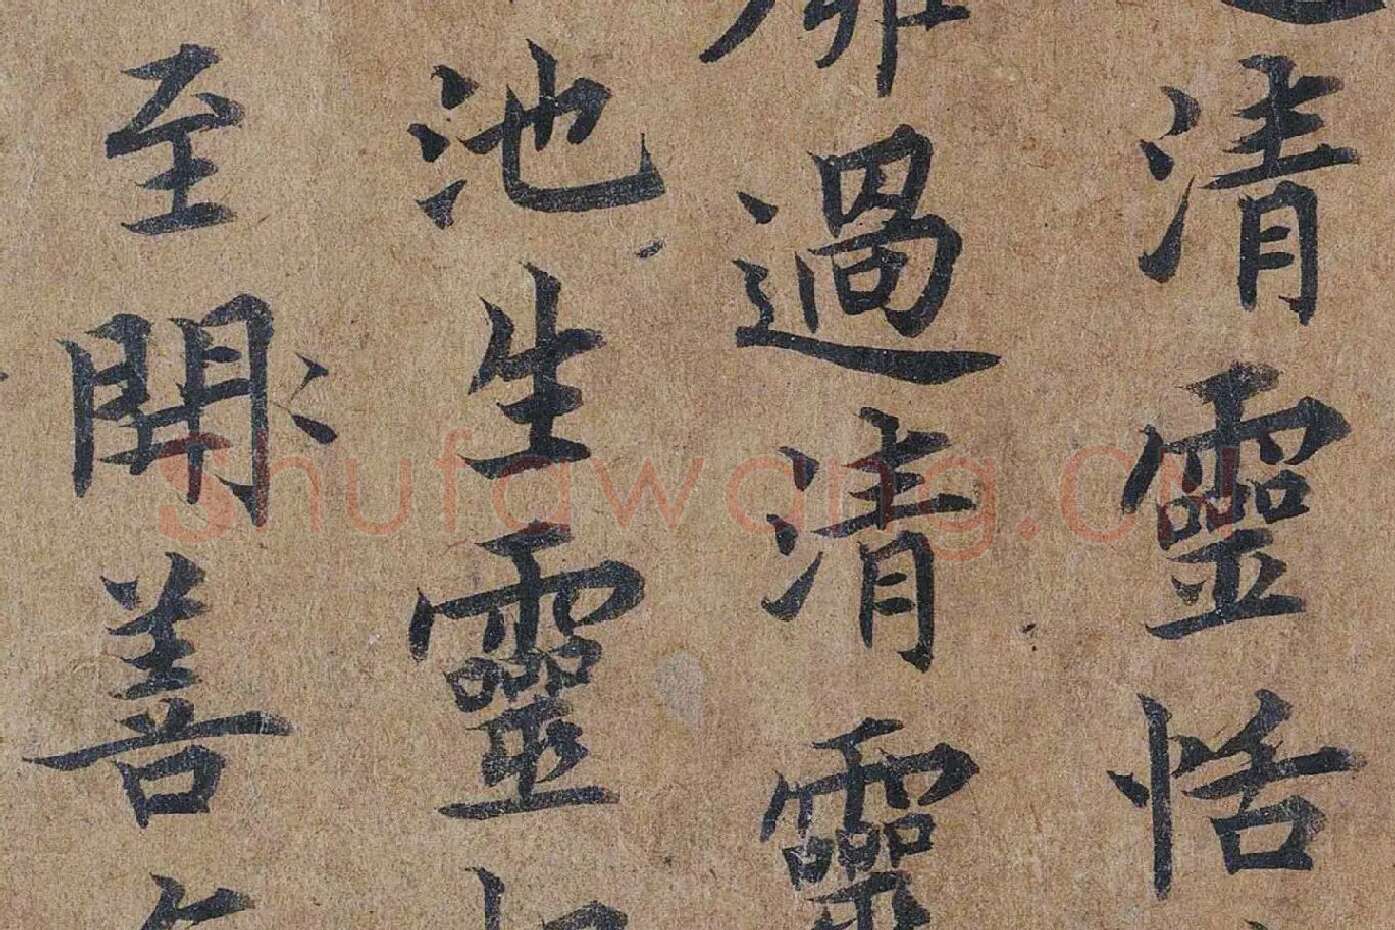 清靈恬
過清靈
池生靈
至開善
shufawang.cn